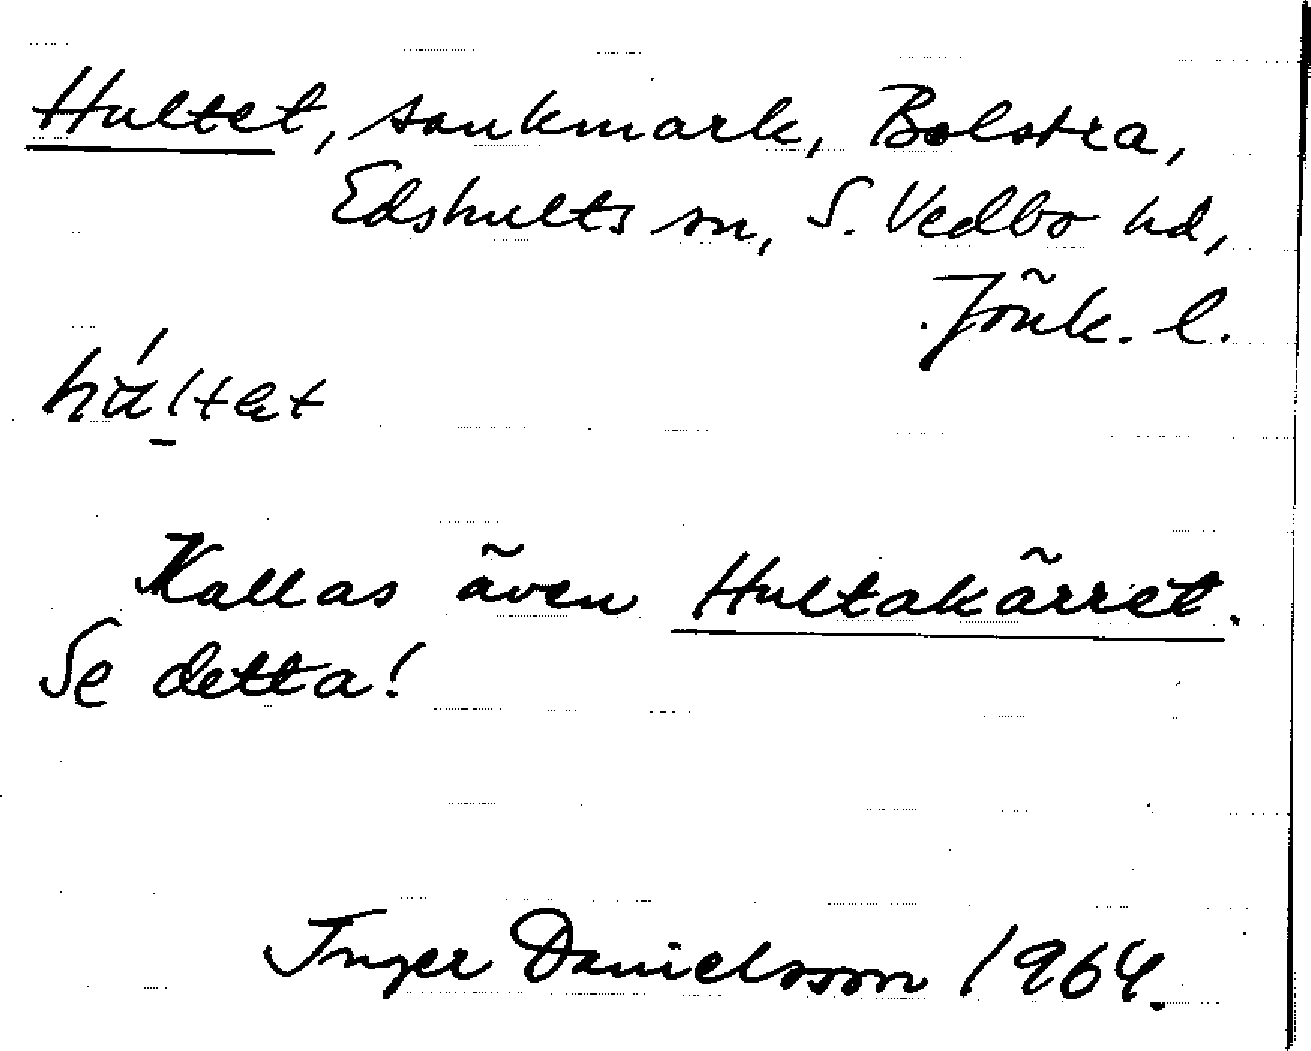 Hultet, sankmark, Bolstra,
Edshults sn, S. Vedbo hd,
Jönk. l.
Kallas även Hultakärret.
Se detta!
Inger Danielsson 1964.